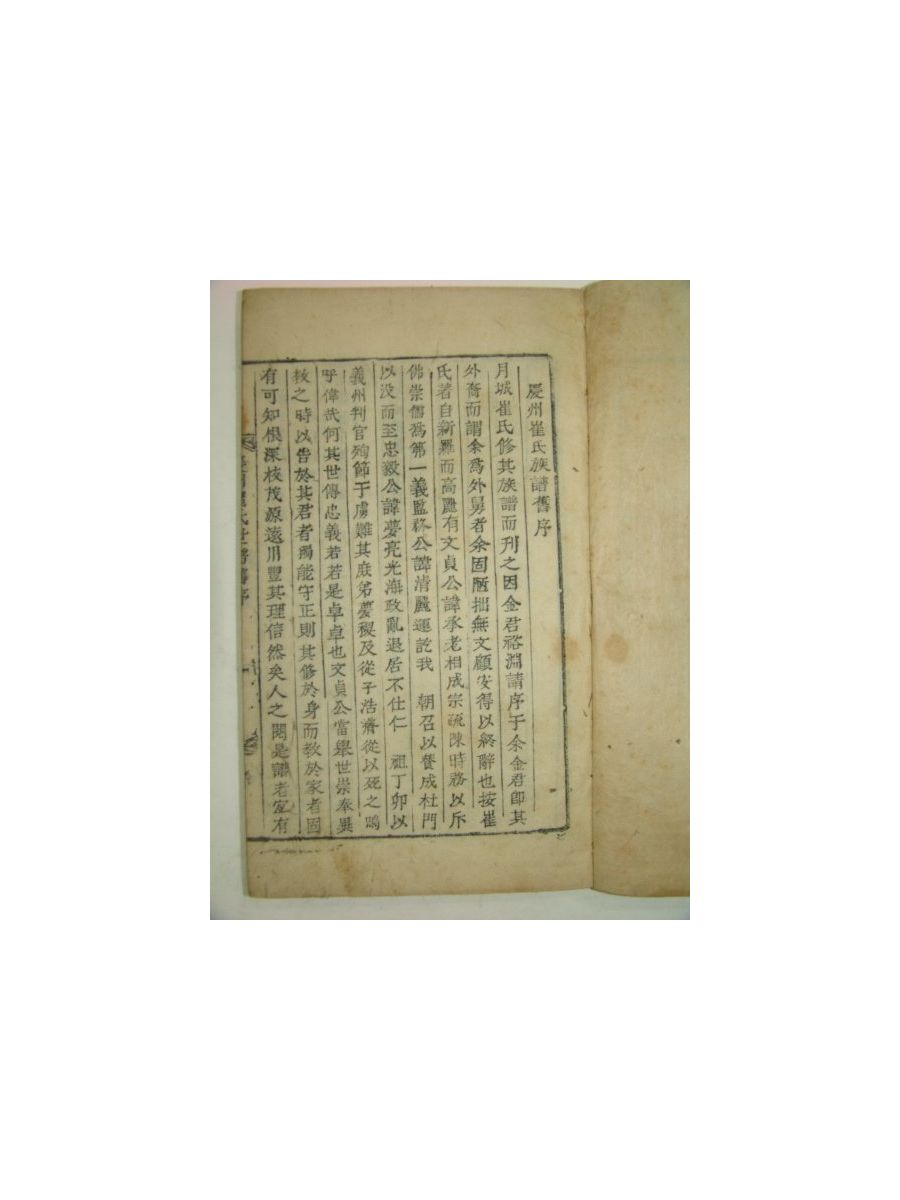 慶州崔氏族譜舊序
月城崔氏修其族譜而刊之因金君裕淵請序于余金君卽其
外裔而謂余爲外舅者余固陋拙無文顧安得以終辭也按崔
氏著自新羅而高麗有文貞公諱承老相成宗疏陳時務以斥
佛崇儒爲第一義監務公諱淸麗運訖我 朝召以養成杜門
以没而至忠毅公諱夢亮光海政亂退居不仕仁 祖丁卯以
義州判官殉節于虜難其庶弟夢稷及從子浩瀞從以死之嗚
乎偉哉何其世傳忠義若若是卓卓也文貞公當擧世崇奉異
敎之時以告於其君者獨能守正則其修於身而敎於家者固
有可知根深枝茂源遠川豐其理信然矣人之閱是譜者宜有